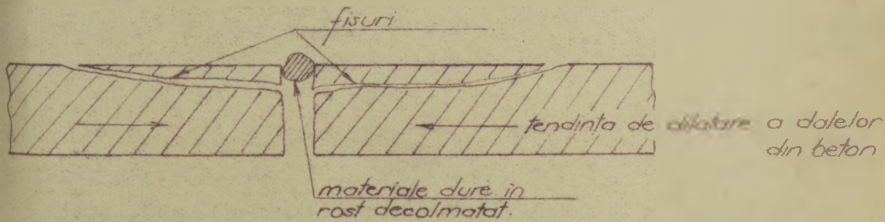 fisuri
tendinta de dilatare a dalelor
din beton
materiale dure in
rost decolmatat.